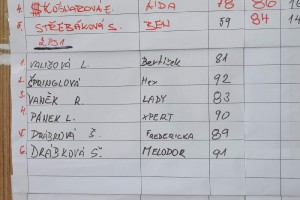 4. KOŠNAROVÁ E. AIDA 78 80
5. STŘEBÁKOVÁ S. BEN 59 84 14
ZZO1
1. VALIŠOVÁ L. Bertíšek 81
2. ŠPRINGLOVÁ Hex 92
3. VANĚK R. LADY 83
4. PÁNEK L. XPERT 90
5. DRÁBKOVÁ Š. FREDERICKA 89
6. DRÁBKOVÁ Š. MELODOR 91